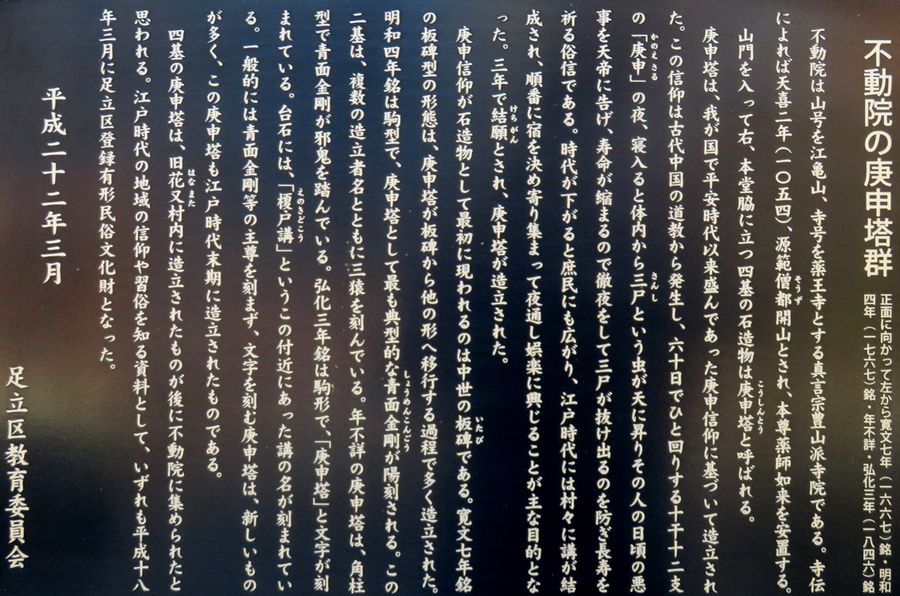 不動院の庚申塔群
正面に向かって左から寛文七年（一六六七）銘・明和
四年（一七六七）銘・年不詳・弘化三年（一八四六）銘
不動院は山号を江亀山、寺号を薬王寺とする真言宗豊山派寺院である。寺伝
によれば天喜二年（一〇五四）、源範僧都開山とされ、本尊薬師如来を安置する。
山門を入って右、本堂脇に立つ四基の石造物は庚申塔と呼ばれる。
庚申塔は、我が国で平安時代以来盛んであった庚申信仰に基づいて造立され
た。この信仰は古代中国の道教から発生し、六十日でひと回りする十干十二支
の「庚申」の夜、寝入ると体内から三尸という虫が天に昇りその人の日頃の悪
事を天帝に告げ、寿命が縮まるので徹夜をして三尸が抜け出るのを防ぎ長寿を
祈る俗信である。時代が下がると庶民にも広がり、江戸時代には村々に講が結
成され、順番に宿を決め寄り集まって夜通し娯楽に興じることが主な目的とな
った。三年で結願とされ、庚申塔が造立された。
庚申信仰が石造物として最初に現われるのは中世の板碑である。寛文七年銘
の板碑型の形態は、庚申塔が板碑から他の形へ移行する過程で多く造立された。
明和四年銘は駒型で、庚申塔として最も典型的な青面金剛が陽刻される。この
二基は、複数の造立者名とともに三猿を刻んでいる。年不詳の庚申塔は、角柱
型で青面金剛が邪鬼を踏んでいる。弘化三年銘は駒形で、「庚申塔」と文字が刻
まれている。台石には、「榎戸講」というこの付近にあった講の名が刻まれてい
る。一般的には青面金剛等の主尊を刻まず、文字を刻む庚申塔は、新しいもの
が多く、この庚申塔も江戸時代末期に造立されたものである。
四基の庚申塔は、旧花又村内に造立されたものが後に不動院に集められたと
思われる。江戸時代の地域の信仰や習俗を知る資料として、いずれも平成十八
年三月に足立区登録有形民俗文化財となった。
平成二十二年三月
足立区教育委員会